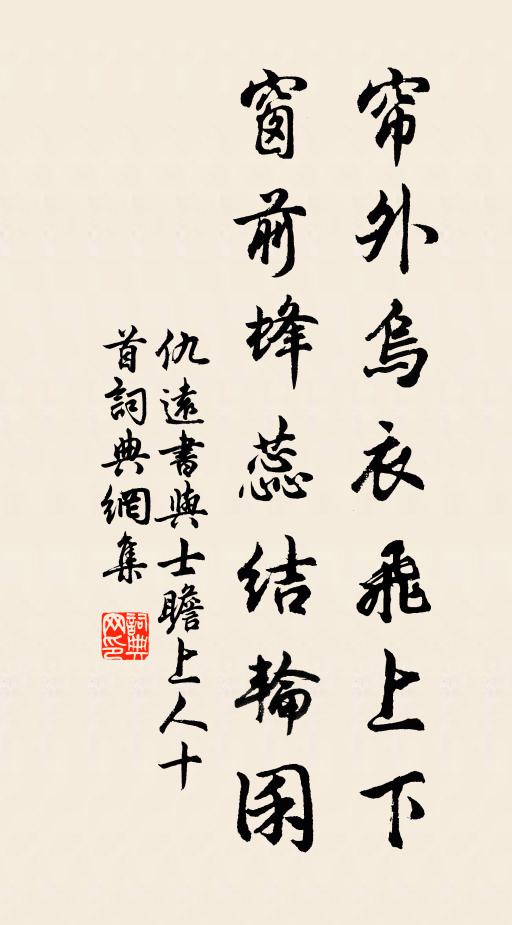 帘外烏衣飛上下
窗前蜂蕊結輪囷
仇遠書與士瞻上人十
首詞典網集
詞典
网印